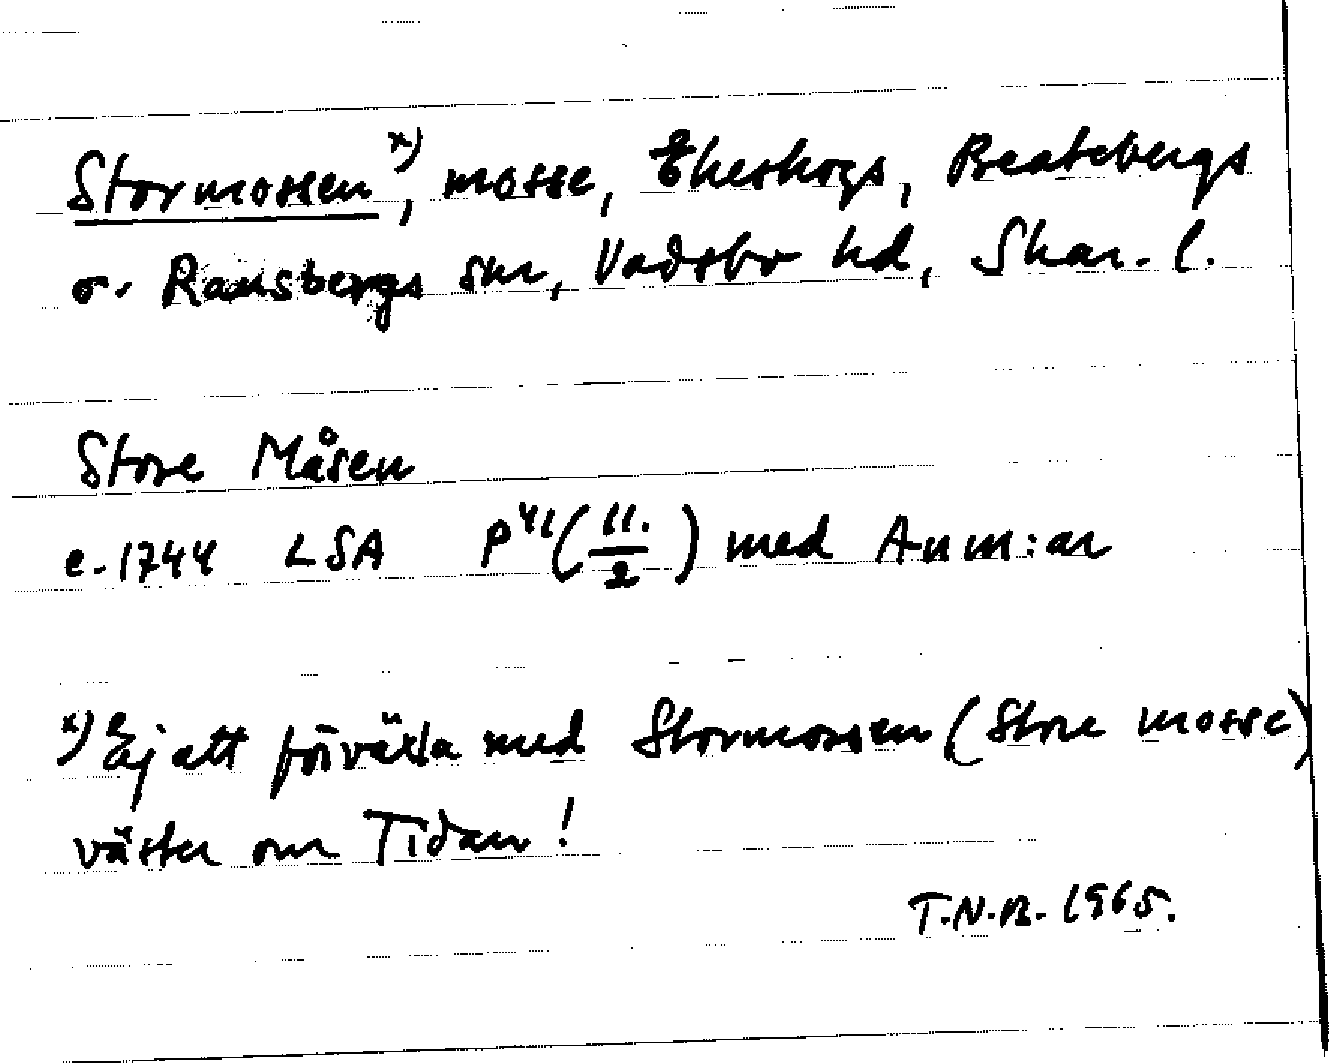 Stormossen x), mosse, Ekeskogs, Beatebergs
o. Ransbergs snr, Vadsbo hd, Skar. l.
Store Måsen
e. 1744 LSA P41 (11./2) med Anm:ar
x) Ej att förväxla med Stormossen (Store mosse)
väster om Tidan!
T.N.R. 1965.